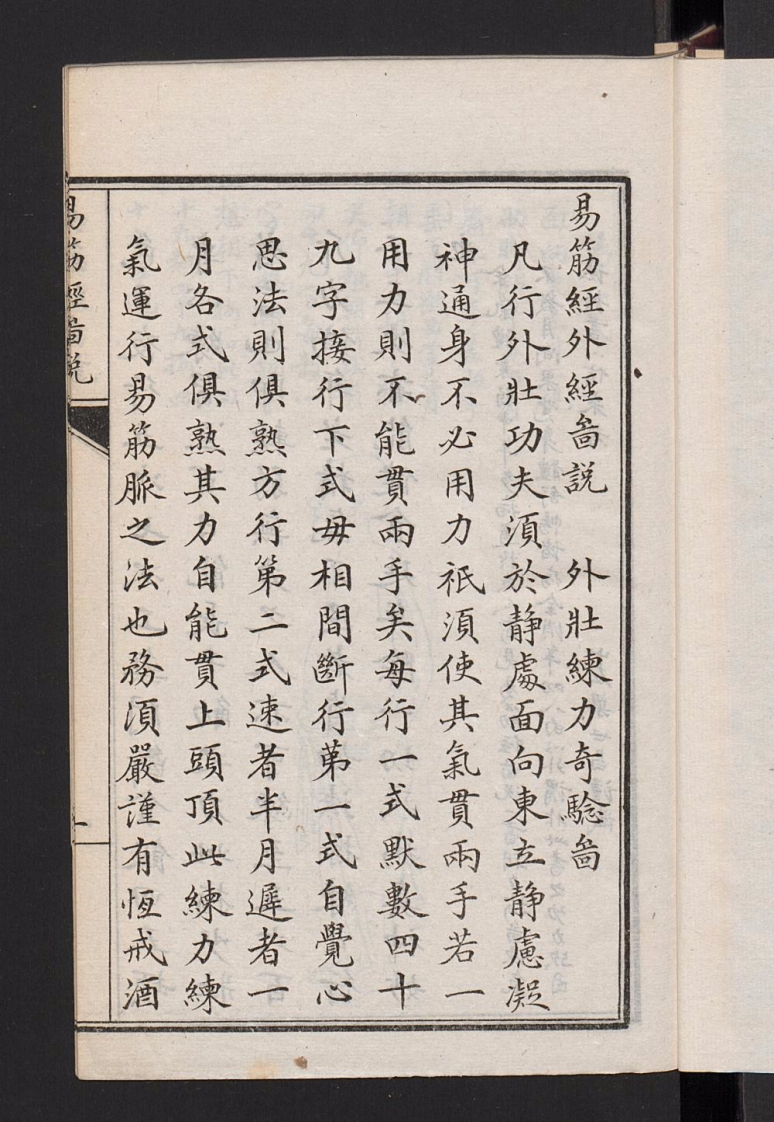 易筋經外經啚説　外壯練力奇驗啚
凡行外壯功夫湏於静處面向東立静慮凝
神通身不必用力祇湏使其氣貫兩手若一
用力則不能貫兩手矣每行一式默數四十
九字接行下式毋相間斷行苐一式自覺心
思法則俱熟方行第二式速者半月遲者一
月各式俱熟其力自能貫上頭頂此練力練
氣運行易筋脈之法也務湏嚴謹有恆戒酒
易筋經啚説
一